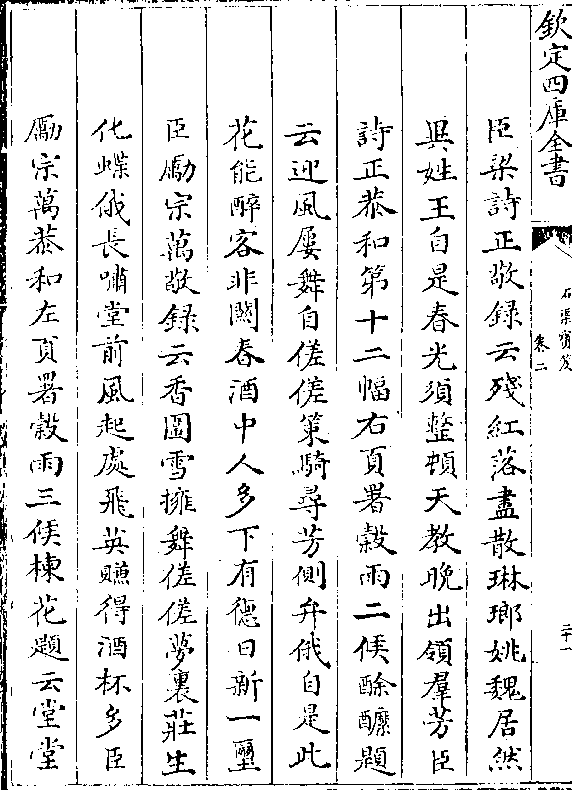 欽定四庫全書
石渠寳笈
卷二
二十一
臣梁詩正敬録云殘紅落盡散琳瑯姚魏居然
異姓王自是春光須整頓天教晚出領羣芳臣
詩正恭和第十二幅右頁署穀雨二候酴醿題
云迎風屢舞自傞傞策騎尋芳側弁俄自是此
花能醉客非闗春酒中人多下有德日新一璽
臣勵宗萬敬録云香圍雪擁舞傞傞夢裏莊生
化蝶俄長嘯堂前風起處飛英賺得酒杯多臣
勵宗萬恭和左頁署穀雨三候楝花題云堂堂